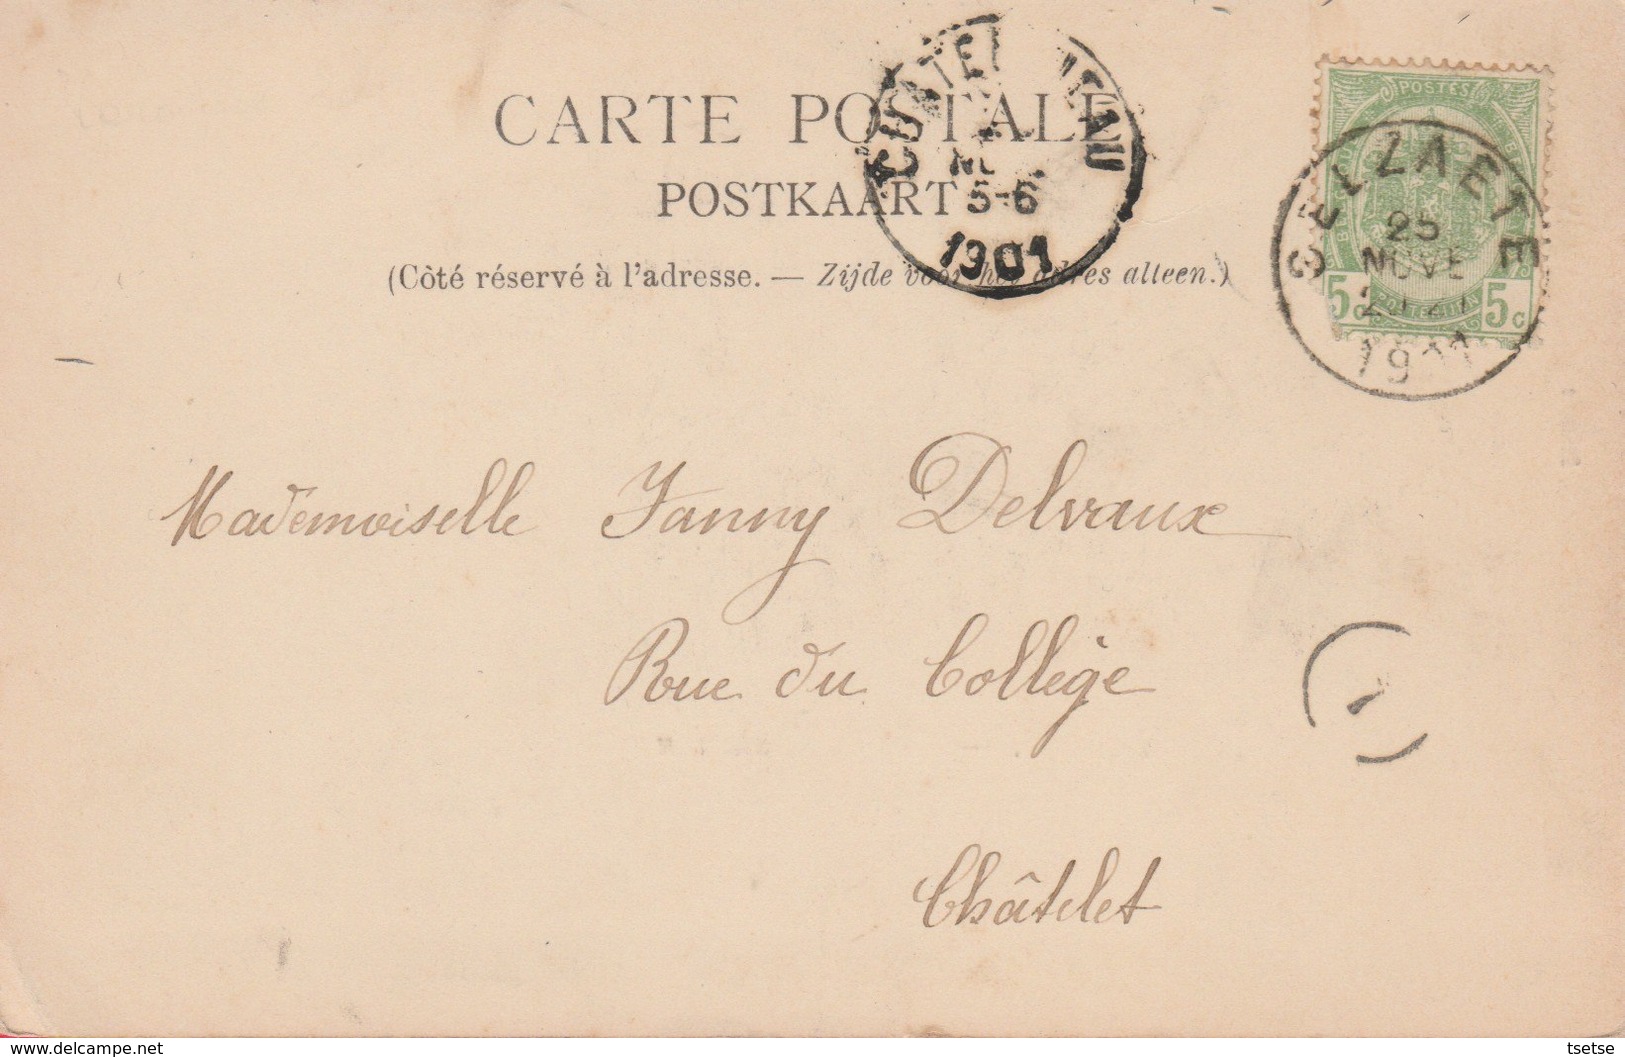 CARTE POSTALE
POSTKAART
(Côté réservé à l'adresse. — Zijde voor het adres alleen.)
5-6
1901
POSTES
SELZAETE
25
NOVE
5c 5c
Mademoiselle Fanny Delvaux
Rue du Collège
Châtelet
www.delcampe.net
tsetse